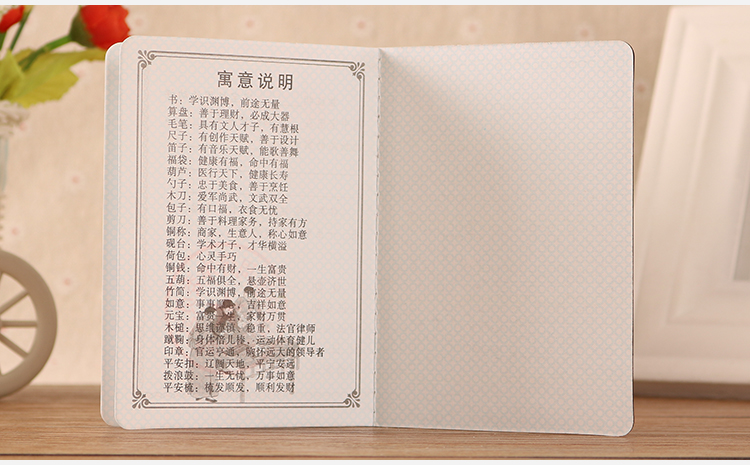 寓意说明
书：学识渊博，前途无量
算盘：善于理财，必成大器
毛笔：具有文人才子，有慧根
尺子：有创作天赋，善于设计
笛子：有音乐天赋，能歌善舞
福袋：健康有福，命中有福
葫芦：医行天下，健康长寿
勺子：忠于美食，善于烹饪
木刀：爱军尚武，文武双全
包子：有口福，衣食无忧
剪刀：善于料理家务，持家有方
铜称：商家，生意人，称心如意
砚台：学术才子，才华横溢
荷包：心灵手巧
铜钱：命中有财，一生富贵
五葫：五福俱全，悬壶济世
竹简：学识渊博，前途无量
如意：事事顺心，吉祥如意
元宝：富贵一生，家财万贯
木槌：思维谨慎，稳重，法官律师
蹴鞠：身体倍儿棒，运动体育健儿
印章：官运亨通，胸怀远大的领导者
平安扣：辽阔天地，平宁安远
拨浪鼓：一生无忧，万事如意
平安梳：梳发顺发，顺利发财